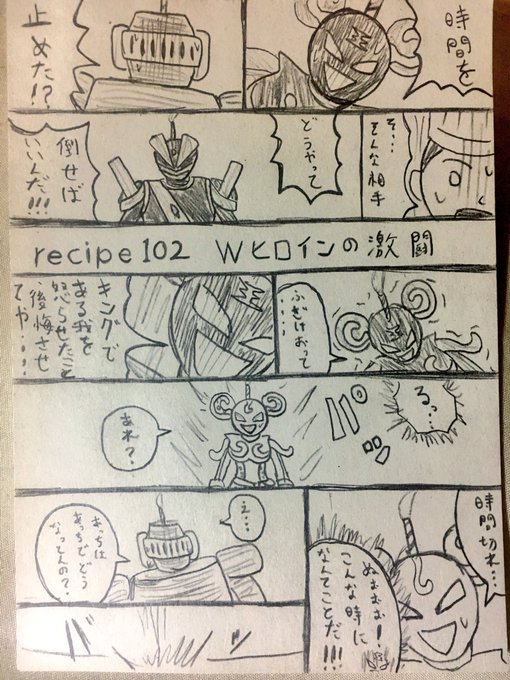 時間を
止めた!?
そ…
そんな相手
どうやって
倒せば
いいんだ!!!
recipe102 Wヒロインの激闘
ふざけおって
……
キングで
ある我を
怒らせたこと
後悔させ
てや…
るっ…
パロロ
あれ?
時間切れ…
ぬぉぉぉ!
こんな時に
なんてことだ!!!
え…
あっちは
あっちでどう
なってんの?